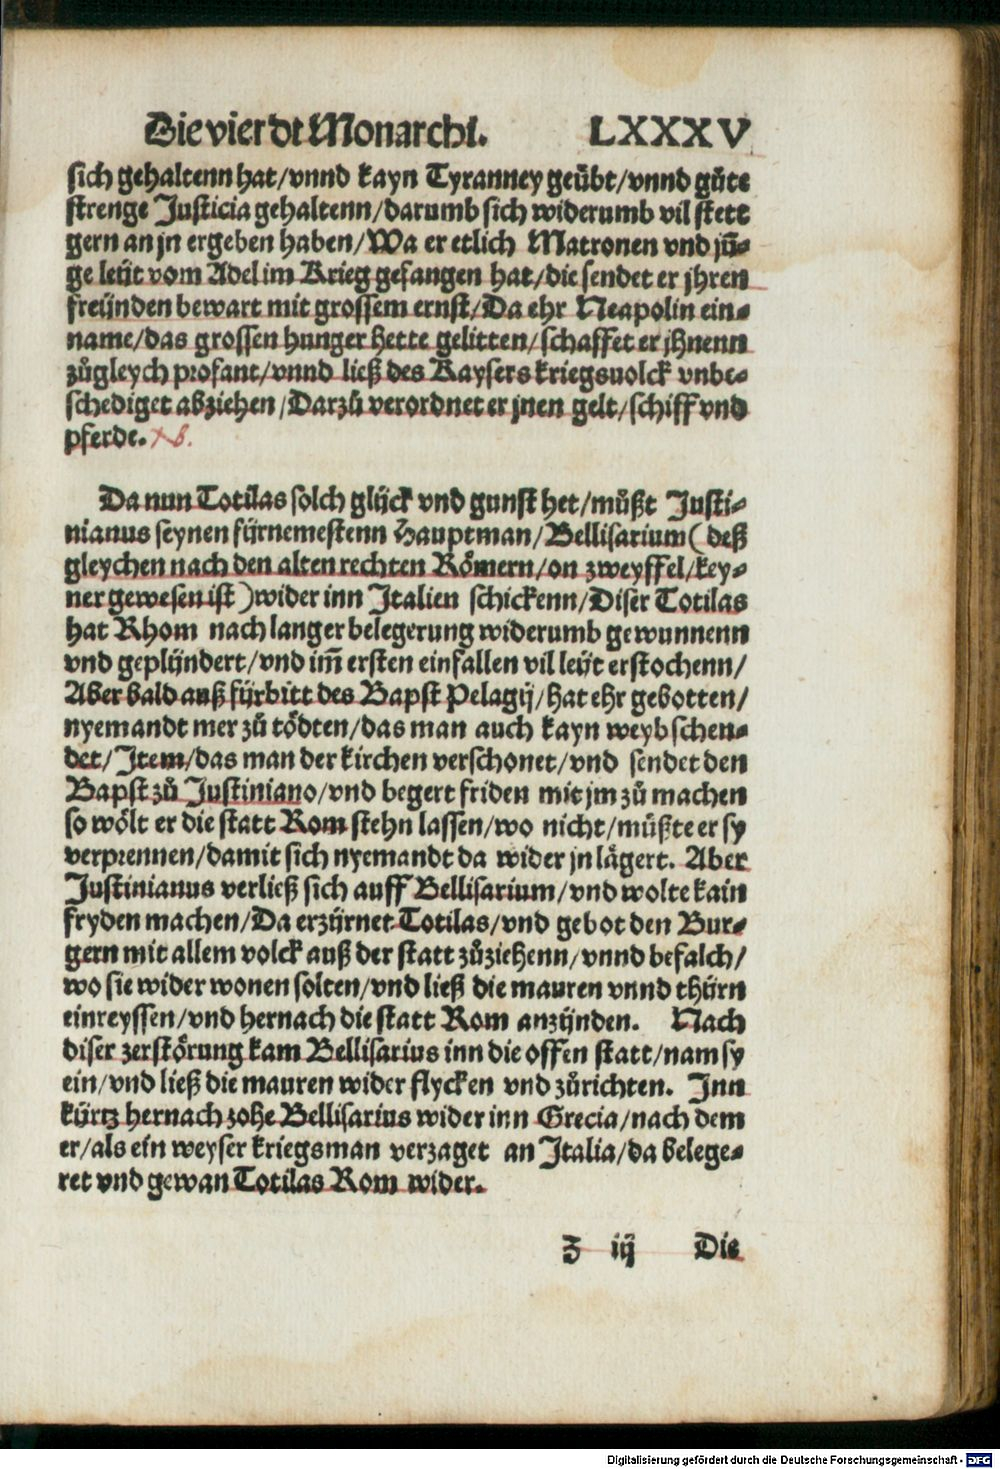 Die vierdt Monarchi. LXXXV
sich gehaltenn hat/vnnd kayn Tyranney geübt/vnnd gůte
strenge Justicia gehaltenn/darumb sich widerumb vil stett
gern an jn ergeben haben/Wa er etlich Matronen vnd jū-
ge leüt vom Adel im Krieg gefangen hat/die sendet er jhren
freünden bewart mit grossem ernst/Da ehr Neapolin ein-
name/das grossen hunger hette gelitten/schaffet er jhnenn
zůgleych profant/vnnd ließ des Kaysers kriegsuolck vnbe-
schediget abziehen/Darzů verordnet er jnen gelt/schiff vnd
pferde.
Da nun Totilas solch glück vnd gunst het/můßt Justi-
nianus seynen fürnemestenn Hauptman/Bellisarium (deß
gleychen nach den alten rechten Römern/on zweyffel/key-
ner gewesen ist) wider inn Italien schickenn/Diser Totilas
hat Rhom nach langer belegerung widerumb gewunnenn
vnd geplündert/vnd im̄ ersten einfallen vil leüt erstochenn/
Aber bald auß fürbitt des Bapst Pelagij/hat ehr gebotten/
nyemandt mer zů tödten/das man auch kayn weyb schen-
det/Item/das man der kirchen verschonet/vnd sendet den
Bapst zů Justiniano/vnd begert friden mit jm zů machen
so wölt er die statt Rom stehn lassen/wo nicht/müßte er sy
verprennen/damit sich nyemandt da wider jn lägert. Aber
Justinianus verließ sich auff Bellisarium/vnd wolte kain
fryden machen/Da erzürnet Totilas/vnd gebot den Bur-
gern mit allem volck auß der statt zůziehenn/vnnd befalch/
wo sie wider wonen solten/vnd ließ die mauren vnnd thürn
einreyssen/vnd hernach die statt Rom anzünden. Nach
diser zerstörung kam Bellisarius inn die offen statt/nam sy
ein/vnd ließ die mauren wider flycken vnd zůrichten. Inn
kürtz hernach zohe Bellisarius wider inn Grecia/nach dem
er/als ein weyser kriegsman verzaget an Italia/da belege-
ret vnd gewan Totilas Rom wider.
Z iij Die
Digitalisierung gefördert durch die Deutsche Forschungsgemeinschaft - DFG